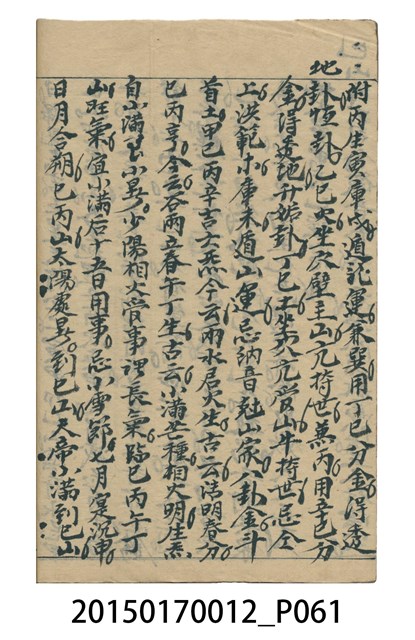 地
附丙生寅庫戌遁龍運兼巽用丁巳分金得透
卦恆卦乙巳火坐穴壁主山亢持世兼丙用辛巳分
金得透地升姤卦丁巳土坐穴亢山牛持世忌全
上洪範水庫未遁山運忌納音尅山家卦金斗
首土甲己丙辛吉大炁今云雨水居火生古云清明春分
巳丙亨今云谷雨立春午丁生古云小滿芒種相火明生炁
自小滿至小暑少陽相火受事理長氣臨巳丙午丁
山旺氣宜小滿后十五日用事忌小雪節七月寔沉申
日月合朔巳丙山太陽處暑到巳山天帝小滿到巳山
20150170012_P061